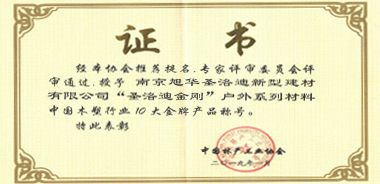 证书
经本协会推荐提名,专家评审委员会评
审通过,授予 南京旭华圣洛迪新型建材
有限公司“圣洛迪金刚”户外系列材料
中国木塑行业10大金牌产品称号。
特此表彰
中国林产工业协会
二〇一九年一月